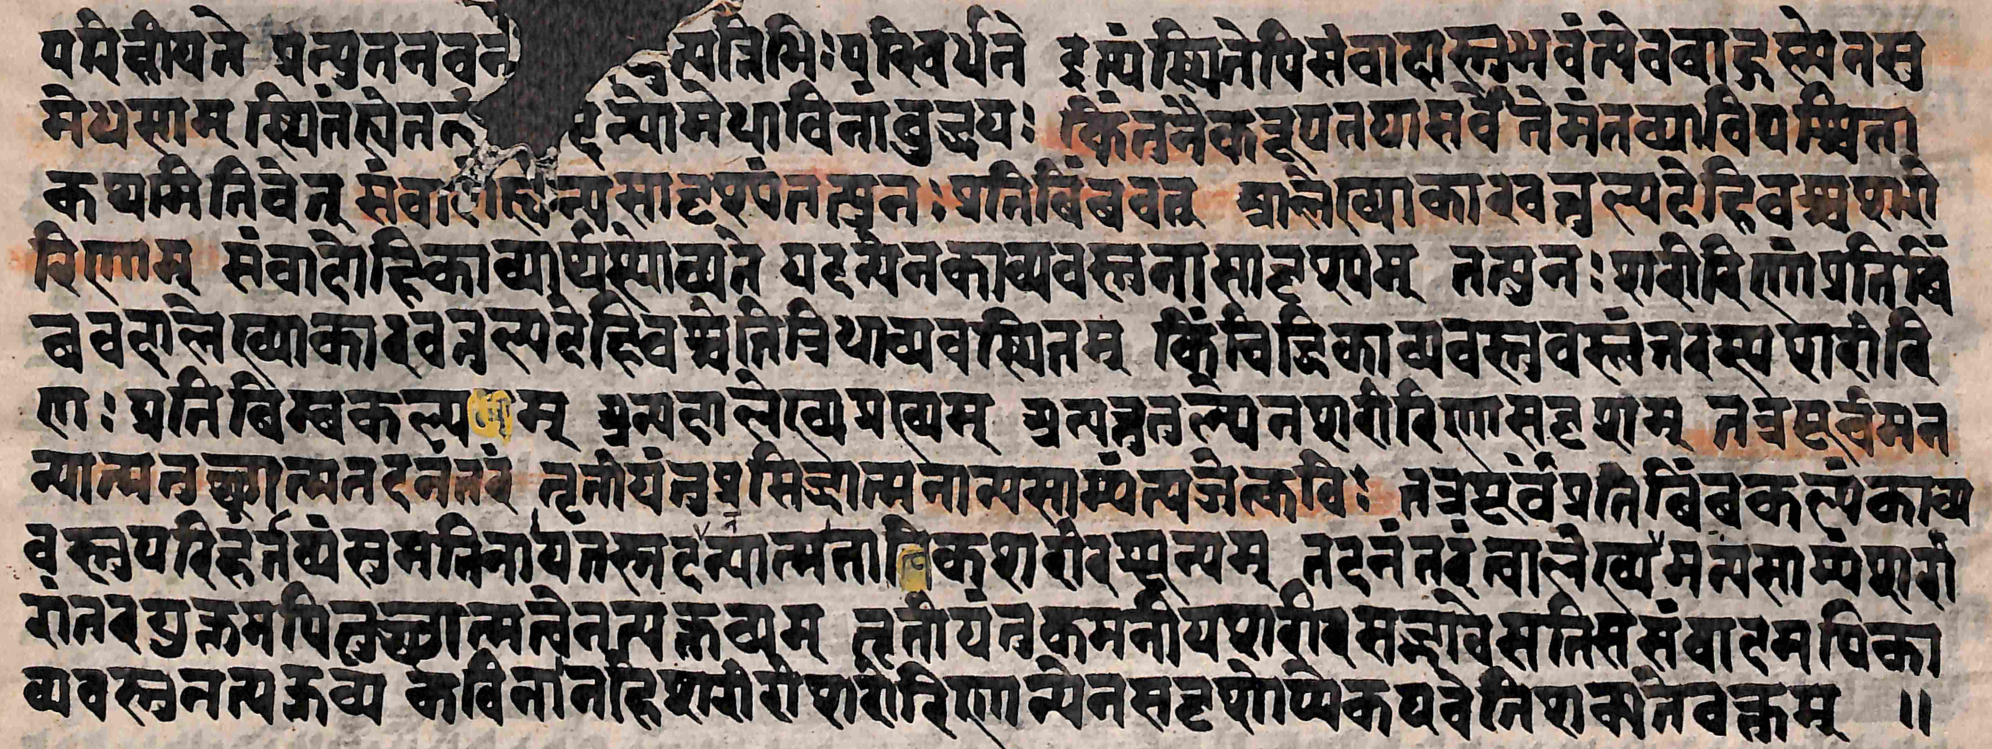 परिक्षीयते प्रत्युत नवन त्पत्तिभिः परिवर्धते इत्थं स्थितेपि संवादास्तु भवंत्येव बाहुल्येन सु
मेधसाम् स्थितं ह्येतत्सं दिन्यो मेधाविनां बुद्धयः किंतु नैकरूपतया सर्वे ते मंतव्या विपश्चिता
कथमिति चेत् संवादो ह्यन्यसादृश्यं तत्पुनः प्रतिबिंबवत् आलेख्याकारवत्तुल्यदेहिवच्च शरी
रिणाम् संवादो हि काव्यार्थस्योच्यते यदन्येन काव्यवस्तुना सादृश्यम् तत्पुनः शरीरिणां प्रतिबिं
बवदालेख्याकारवत्तुल्यदेहिवच्चेति त्रिधा व्यवस्थितम् किंचिद्धि काव्यवस्तु वस्त्वंतरस्य शरीरि
णः प्रतिबिम्बकल्पम् अन्यदालेख्यप्रख्यम् अन्यत्तुल्येन शरीरिणा सदृशम् तत्र पूर्वमन
न्यात्म तुच्छात्म तदनंतरं तृतीयं तु प्रसिद्धात्म नान्यसाम्यं त्यजेत्कविः तत्र पूर्वं प्रतिबिंबकल्पं काव्य
वस्तु परिहर्तव्यं सुमतिना यतस्तदनन्यात्म तात्विकशरीरशून्यम् तदनंतरं त्वालेख्यमन्यसाम्यं शरी
रांतरयुक्तमपि तुच्छात्मत्वेन त्यक्तव्यम् तृतीयं तु कमनीयशरीरसद्भावे सति ससंवादमपि का
व्यवस्तु न त्यक्तव्यं कविना न हि शरीरी शरीरिणान्येन सदृशोप्येक एवेति शक्यते वक्तुम् ॥